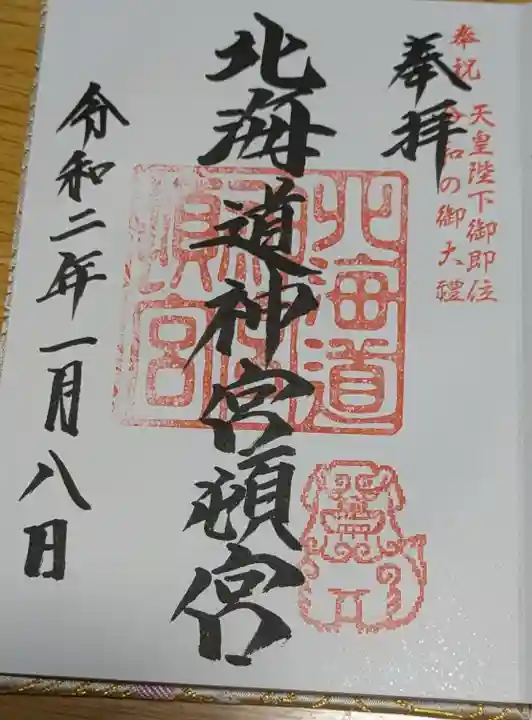 奉祝 天皇陛下御即位
令和の御大禮
奉拝
北海道神宮頓宮
北海道
神宮
頓宮
令和二年一月八日